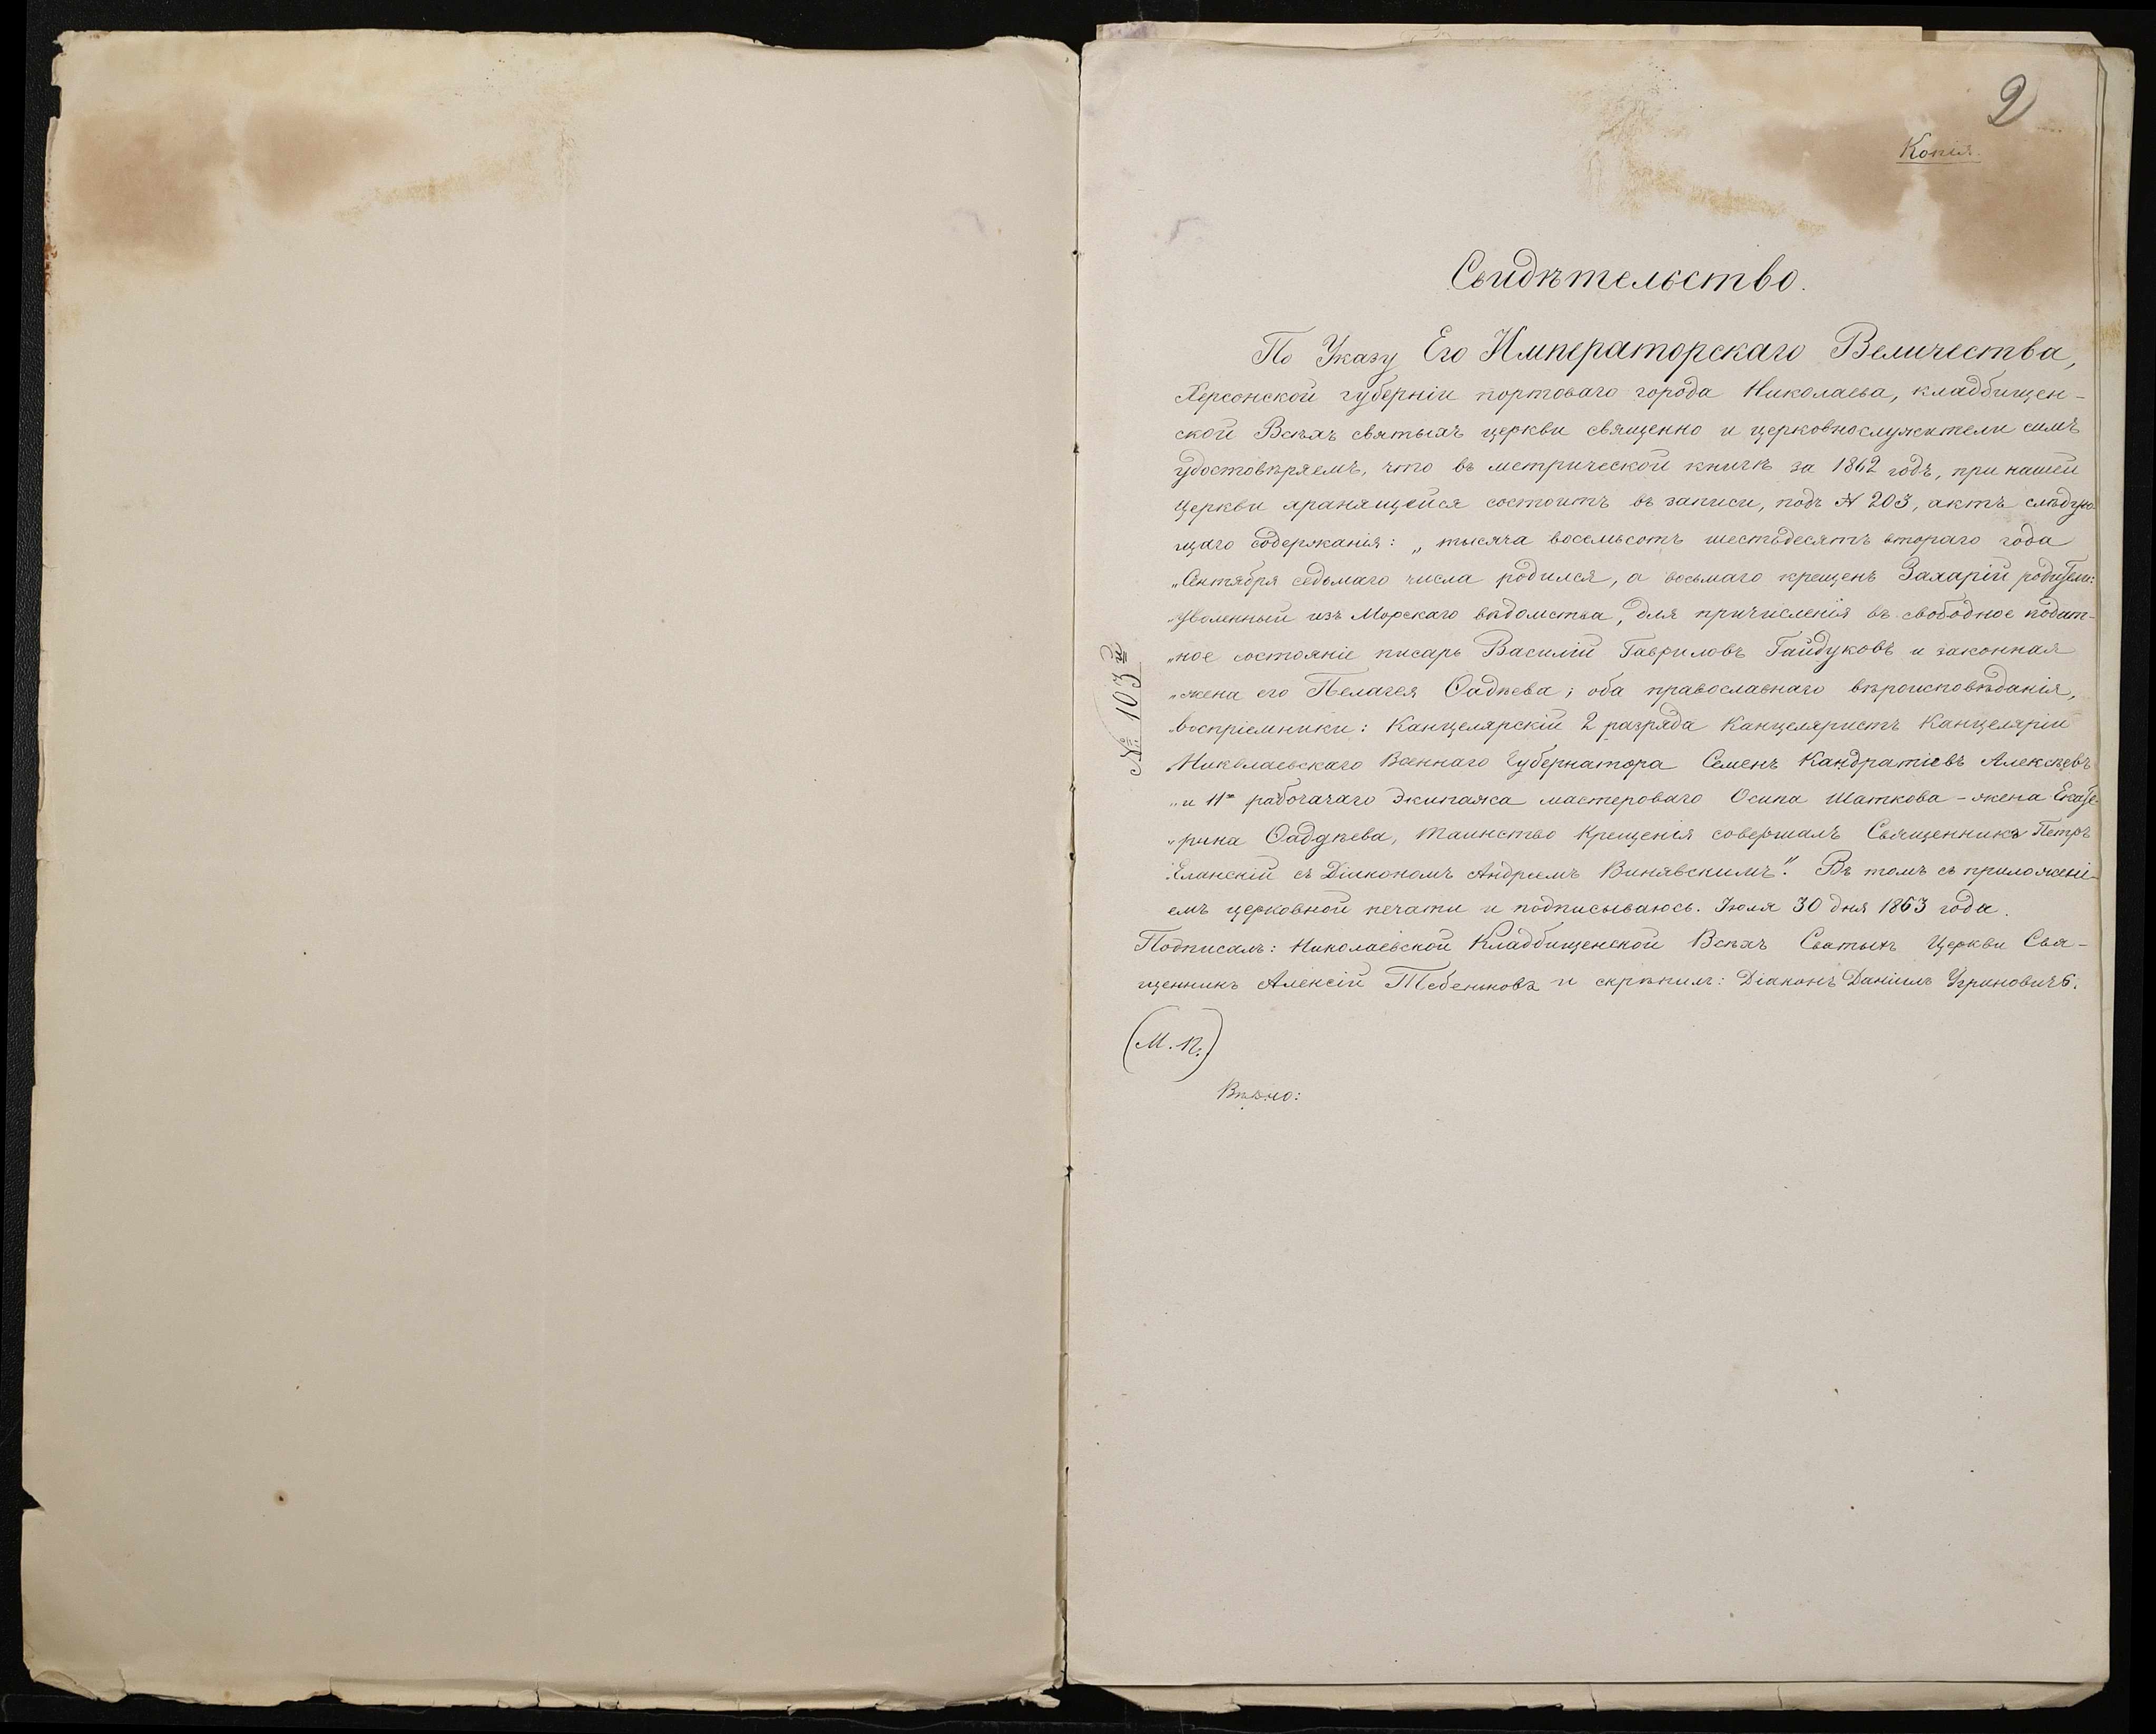 2
Копія.
Свидѣтельство.
По Указу Его Императорскаго Величества,
Херсонской губерніи портоваго города Николаева, кладбищен-
ской Всѣхъ святыхъ церкви священно и церковнослужители симъ
удостовѣряемъ, что въ метрической книгѣ за 1862 годъ, при нашей
церкви хранящейся состоитъ въ записи, подъ № 203, актъ слѣдую-
щаго содержанія: „тысяча восемьсотъ шестьдесятъ втораго года
„Сентября седьмаго числа родился, а восьмаго крещенъ Захарій родители:
„уволенный изъ Морскаго вѣдомства, для причисленія въ свободное подат-
„ное состояніе писарь Василій Гавриловъ Гайдуковъ и законная
„жена его Пелагея Фадѣева; оба православнаго вѣроисповѣданія,
„воспріемники: Канцелярскій 2 разряда Канцеляристъ Канцеляріи
„Николаевскаго Военнаго Губернатора Семенъ Кандратіевъ Алексѣевъ
„и 11го рабочачаго Экипажа мастероваго Осипа Шаткова - жена Екате-
„рина Фаддѣева, Таинство Крещенія совершалъ Священникъ Петръ
„Еланскій съ Діакономъ Андреемъ Винявскимъ". Въ томъ съ приложені-
емъ церковной печати и подписываюсь. Іюля 30 дня 1863 года.
Подписалъ: Николаевской Кладбищенской Всѣхъ Святыхъ Церкви Свя-
щенникъ Алексій Тебеньковъ и скрѣпилъ: Діаконъ Даніилъ Угриновичъ.
(М. П.)
Вѣрно:
№ 103й